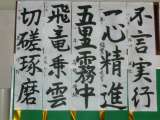 不言実行
一心精進
五里霧中
飛竜乗雲
切磋琢磨